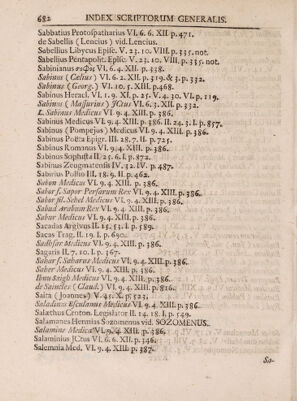 682 INDEX SCRIPTORUM GENERALIS.
Sabbatius Protospatharius VI. 6. 6. XII. p. 471.
de Sabellis (Lencius) vid. Lencius.
Sabellius Libycus Episc. V. 23. 10. VIII. p. 335. not.
Sabellius Pentapolit. Episc. V. 23. 10. VIII. p. 335. not.
Sabinianus σοφὸς VI. 6. 4. XII. p. 338.
Sabinus (Cælius) VI. 6. 2. XII. p. 319. & 3. p. 332.
Sabinus (Georg.) VI. 10. 5. XIII. p. 468.
Sabinus Heracl. VI. 1. 9. XI. p. 25. V. 4. 30. VI. p. 119.
Sabinus (Massurius) JCtus VI. 6. 3. XII. p. 332.
L. Sabinus Medicus VI. 9. 4. XIII. p. 386.
Sabinus Medicus VI. 9. 4. XIII. p. 386. II. 24. 3. I. p. 857.
Sabinus (Pompejus) Medicus VI. 9. 4. XIII. p. 386.
Sabinus Poëta Epigr. III. 28. 7. II. p. 725.
Sabinus Romanus VI. 9. 4. XIII. p. 386.
Sabinus Sophista II. 25. 6. I. p. 872.
Sabinus Zeugmatensis IV. 32. IV. p. 487.
Sabirius Pollio III. 18. 9. II. p. 462.
Sabon Medicus VI. 9. 4. XIII. p. 386.
Sabor f. Sapor Persarum Rex VI. 9. 4. XIII. p. 386.
Sabor fil. Sebel Medicus VI. 9. 4. XIII. p. 386.
Sabud Arabum Rex VI. 9. 4. XIII. p. 386.
Sabur Medicus VI. 9. 4. XIII. p. 386.
Sacadas Argivus II. 15. 53. I. p. 589.
Sacas Trag. II. 19. I. p. 690.
Sadhsar Medicus VI. 9. 4. XIII. p. 386.
Sagaris II. 7. 10. I. p. 367.
Sahar f. Saharus Medicus VI. 9. 4. XIII. p. 386.
Saher Medicus VI. 9. 4. XIII. p. 386.
Ibnu Saigh Medicus VI. 9. 4. XIII. p. 386.
de Sainctes (Claud.) VI. 9. 4. XIII. p. 816.
Saita (Joannes) V. 45. X. p. 523.
Saladinus Esculanus Medicus VI. 9. 4. XIII. p. 386.
Salæthus Croton. Legislator II. 14. 18. I. p. 549.
Salamanes Hermias Sozomenus vid. SOZOMENUS.
Salamine Medica VI. 9. 4. XIII. p. 386.
Salaminius JCtus VI. 6. 6. XII. p. 346.
Salemnia Med. VI. 9. 4. XIII. p. 387.
Sa-